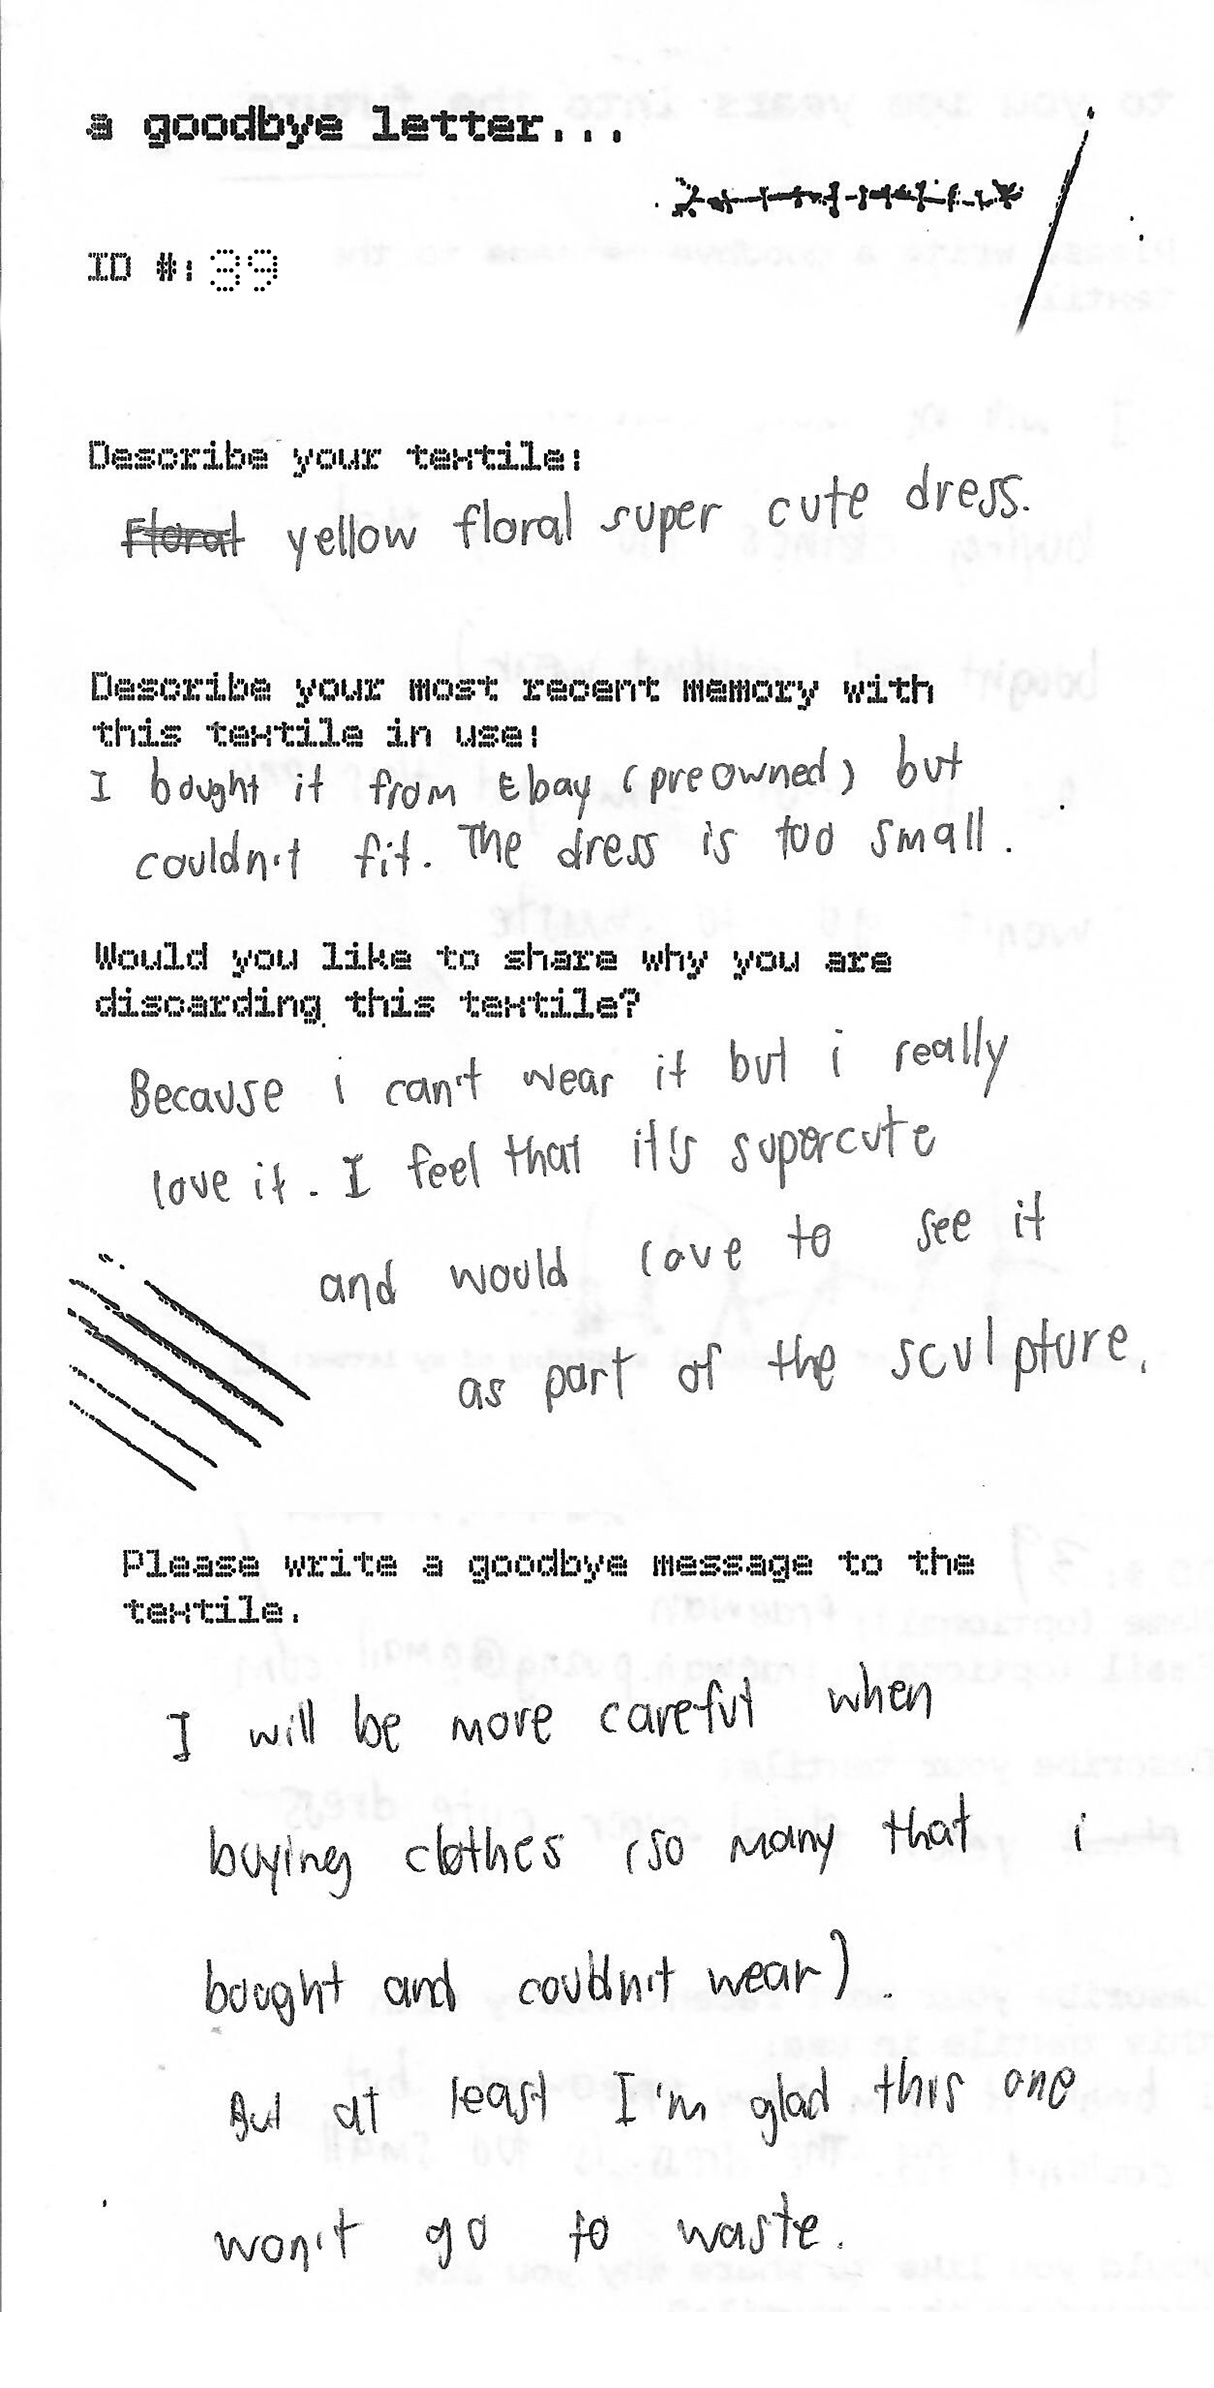 a goodbye letter...
ID #: 39
Describe your textile:
Floral yellow floral super cute dress.
Describe your most recent memory with
this textile in use:
I bought it from Ebay (preowned) but
couldn't fit. The dress is too small.
Would you like to share why you are
discarding this textile?
Because i can't wear it but i really
love it. I feel that it's supercute
and would love to see it
as part of the sculpture.
Please write a goodbye message to the
textile.
I will be more careful when
buying clothes (so many that i
bought and couldn't wear).
But at least I'm glad this one
won't go to waste.